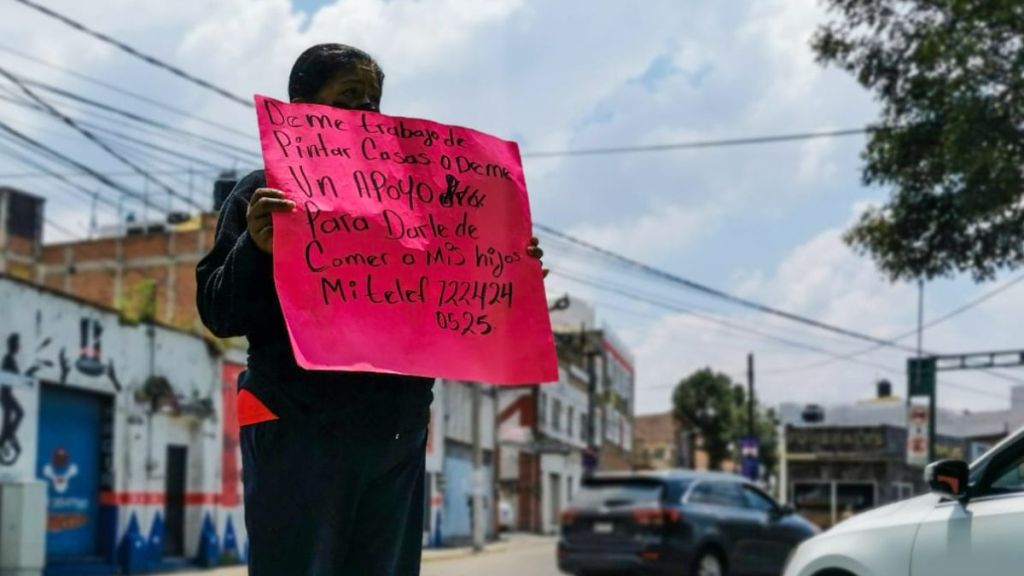 Deme trabajo de
Pintar Casas o Deme
Un APoyo
Para Darle de
Comer a Mis hijos
Mi telef 722424
0525